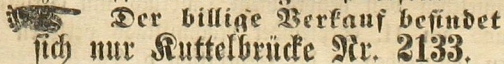 Der billige Verkauf befindet
sich nur Kuttelbrücke Nr. 2133.